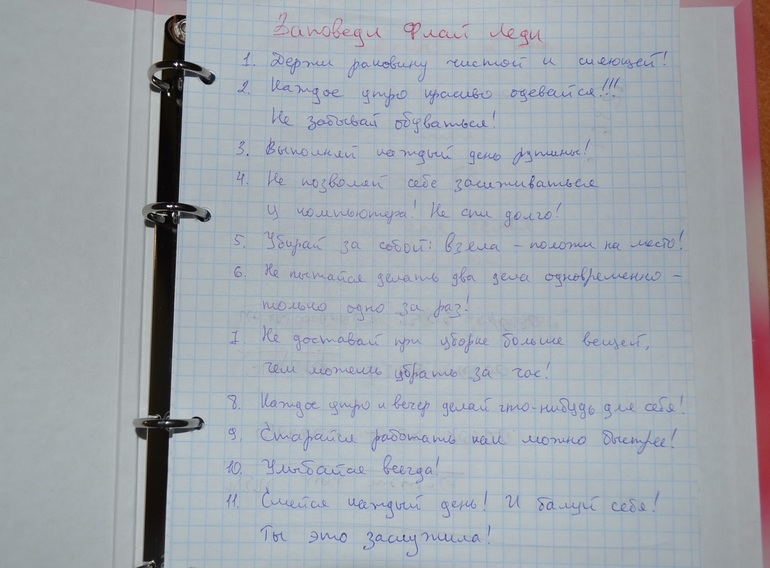 Заповеди Флай Леди
1. Держи раковину чистой и сияющей!
2. Каждое утро красиво одевайся!!!
Не забывай обуваться!
3. Выполняй каждый день рутины!
4. Не позволяй себе засиживаться
у компьютера! Не спи долго!
5. Убирай за собой: взяла – положи на место!
6. Не пытайся делать два дела одновременно –
только одно за раз!
7. Не доставай при уборке больше вещей,
чем можешь убрать за час!
8. Каждое утро и вечер делай что-нибудь для себя!
9. Старайся работать как можно быстрее!
10. Улыбайся всегда!
11. Смейся каждый день! И балуй себя!
Ты это заслужила!